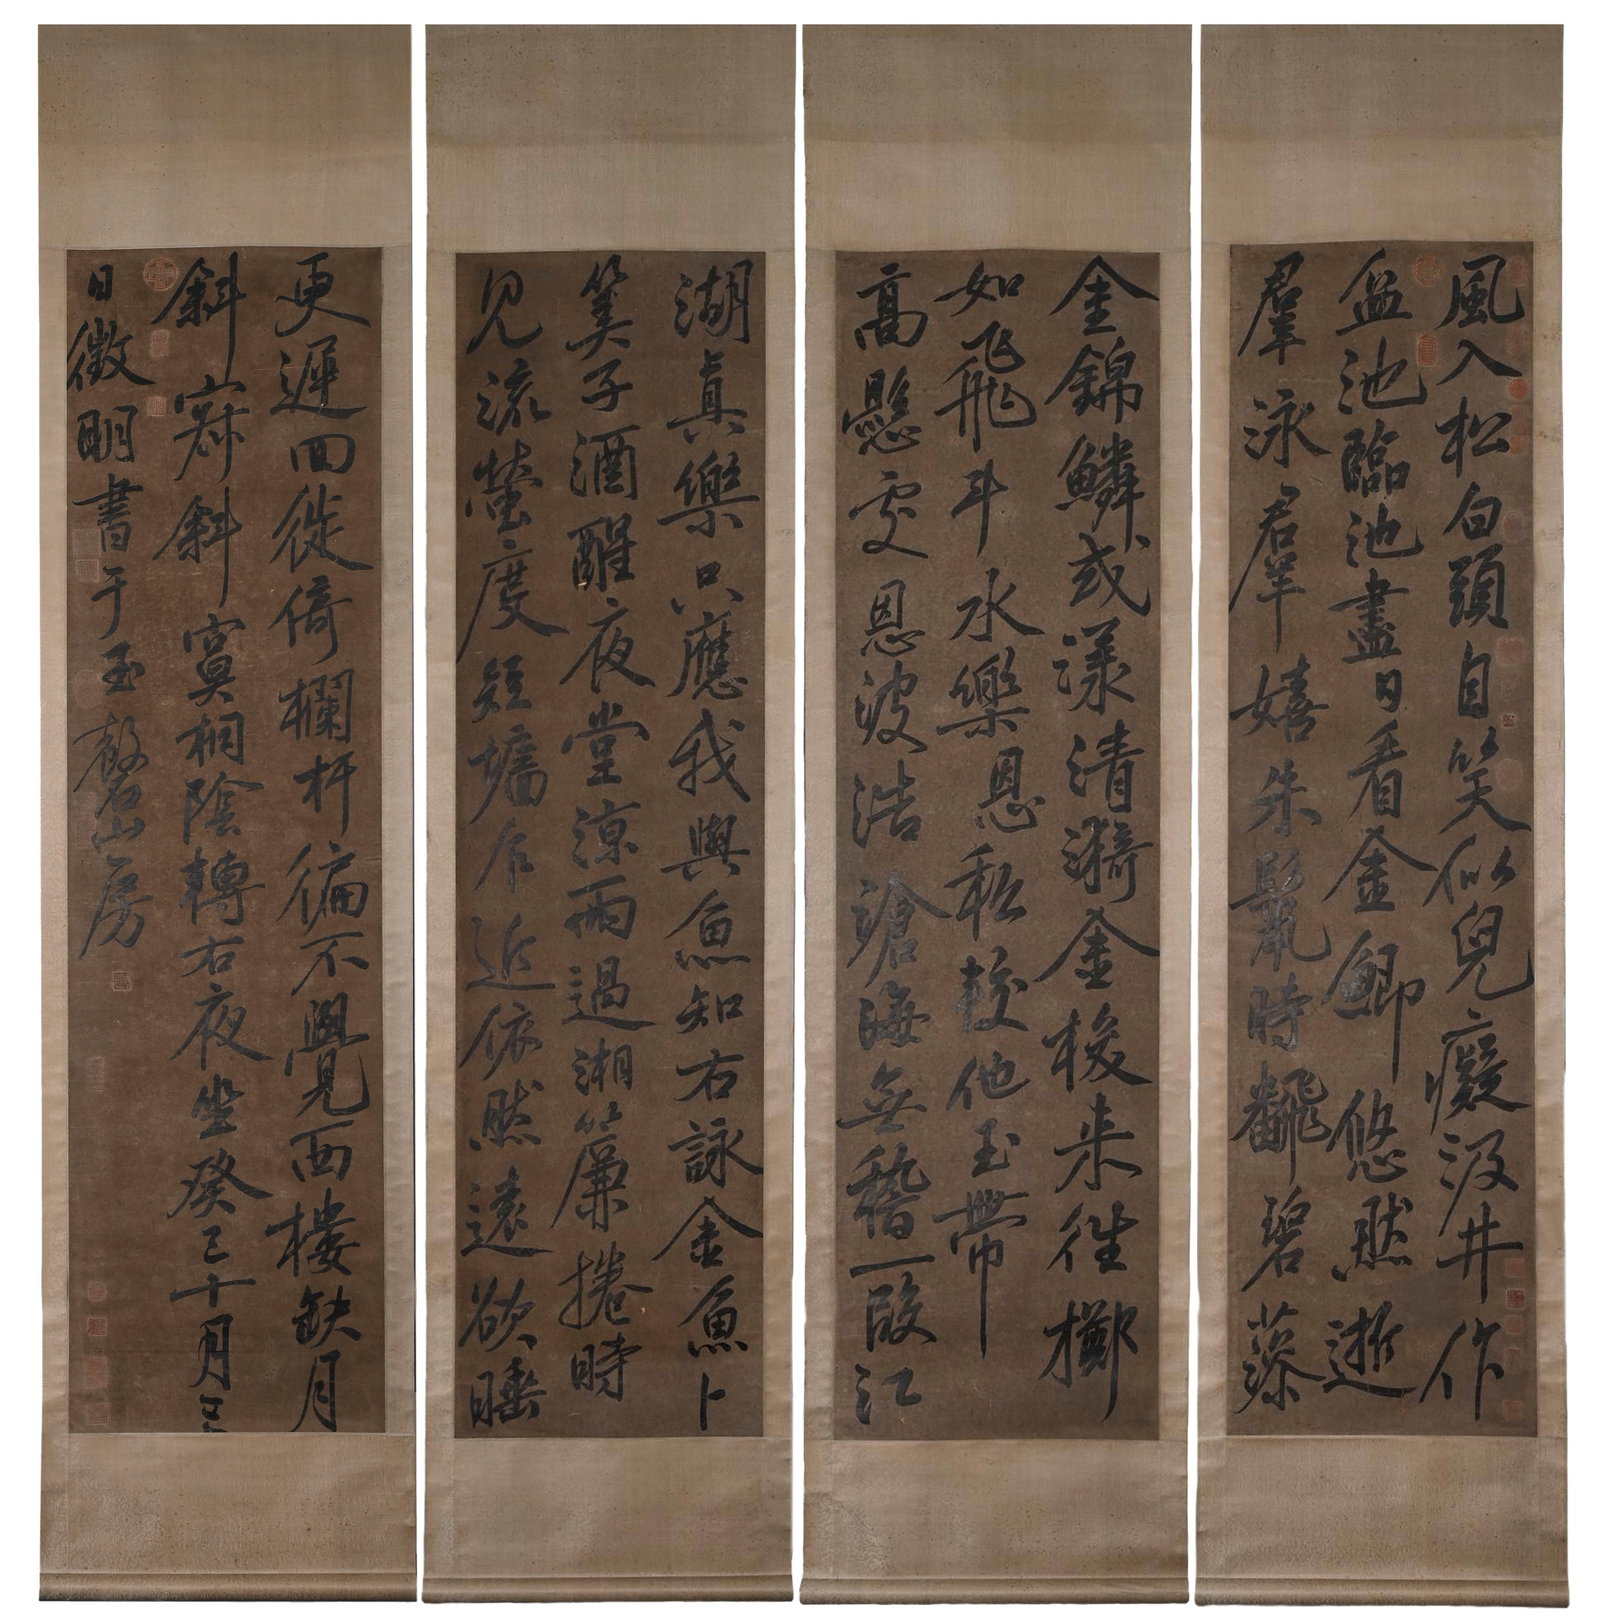 風入松白頭自笑似兒癡汲井作
盆池臨池盡日看金鯽悠然逝
羣泳羣嬉朱鬣時翻碧藻
金錦鱗或漾清漪金梭來往擲
如飛斗水樂恩私較他玉帶
高懸處恩波浩滄海無穚一段江
湖真樂只應我與魚知右詠金魚卜
筭子酒醒夜堂涼雨過湘簾捲時
見流螢度短墻乍近依然遠欲睡
更遲回徙倚欄杆徧不覺西樓缺月
斜斜寞桐陰轉右夜坐癸巳十月三
日徵明書于玉磬山房